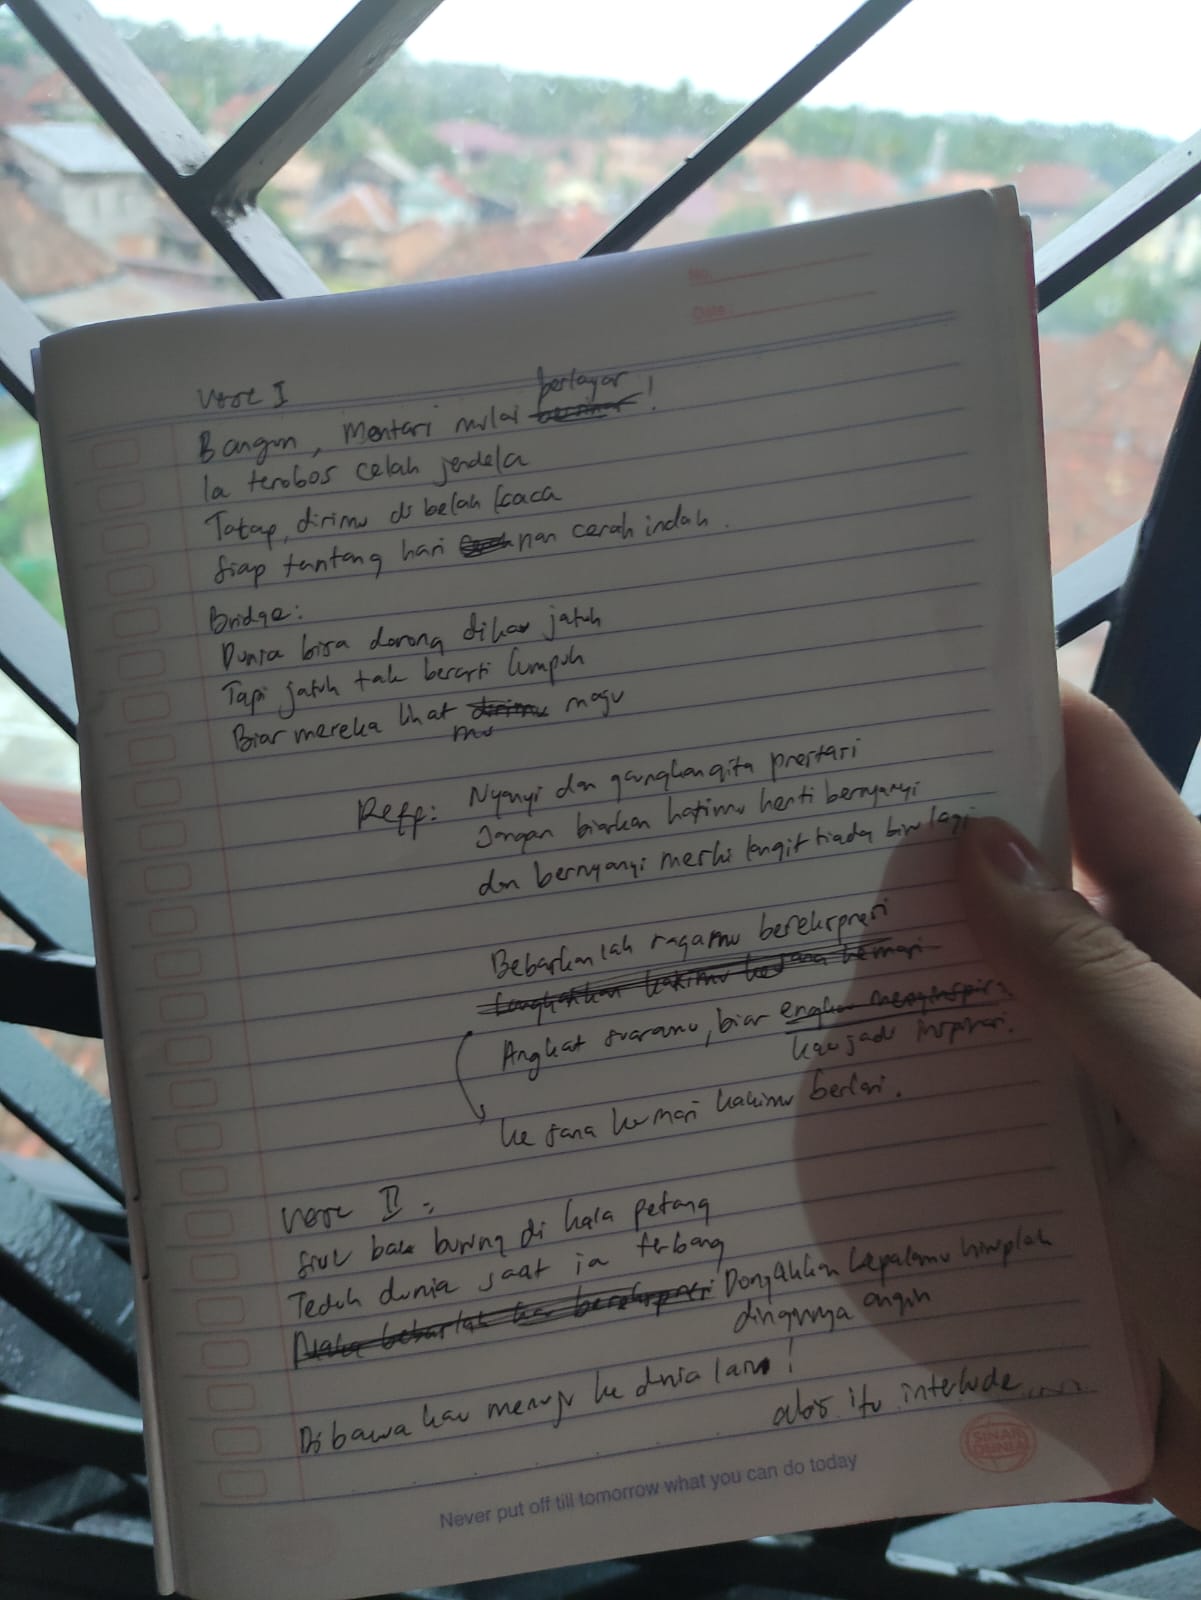 No.
Date:
Verse I
berlayar
Bangun, Mentari mulai !
Ia terobos celah jendela
Tatap, dirimu di belah kaca
Siap tantang hari nan cerah indah.
Bridge:
Dunia bisa dorong dikau jatuh
Tapi jatuh tak berarti lumpuh
Biar mereka lihat dirimu maju
mu
Reff: Nyanyi dan gaungkan gita prestasi
Jangan biarkan hatimu henti bernyanyi
dan bernyanyi meski langit tiada biru lagi
Bebaskanlah ragamu berekspresi
Langkahkan kakimu ke sana kemari
Angkat suaramu, biar engkau menginspirasi
kau jadi inspirasi.
ke sana kemari kakimu berlari.
Verse II:
Siul bak burung di kala petang
Teduh dunia saat ia terbang
Maka bebaslah kau berekspresi Dongakkan kepalamu hiruplah
dinginnya angin
Dibawa kau menuju ke dunia lain!
abis itu interlude
SINAR DUNIA
Never put off till tomorrow what you can do today